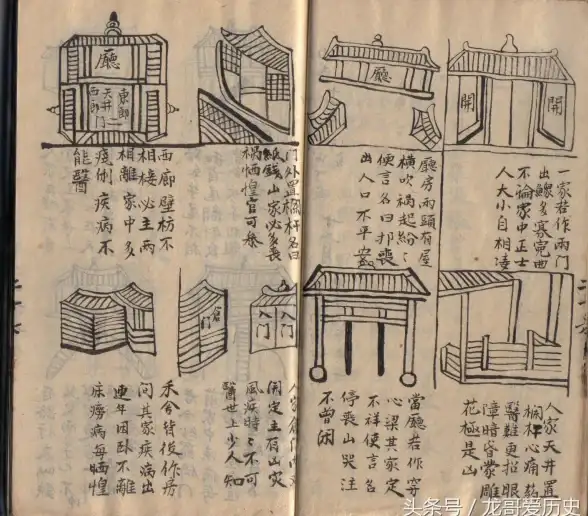 開
開
一家若作兩門
出鰥多寡冤屈
不論家中正士
人大小自相凌
廳
廳房兩頭有屋
橫吹禍起紛〻
便言名曰抑喪
出人口不平安
人家天井置
欄杆心痛藥
醫難更招眼
障暗昏蒙雕
花極是凶
當廳若作穿
心梁其家定
不祥便言名
停喪山哭注
不曾闲
門外置欄杆名曰
紙錢山家必多喪
禍恓惶官可恭
廳
東郎
天井
門
西郎
西廊壁枋不
相接必主兩
相離家中多
疾病不
能醫
入门
入门
倉门
人家
闲定主有山灾
風疾時〻不可
醫世上少人知
禾仓背後作房
问其家疾病出
連年困卧不離
床癆病每恓惶
头条号 / 龙哥爱历史